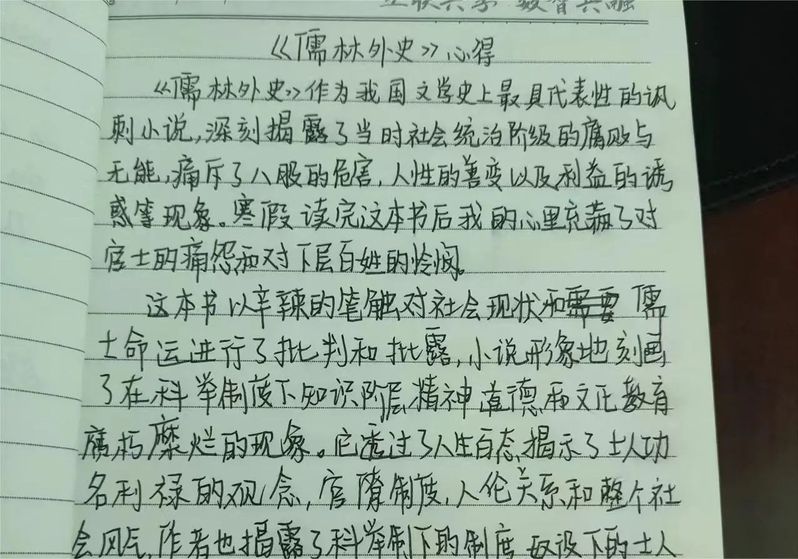 《儒林外史》心得
《儒林外史》作为我国文学史上最具代表性的讽
刺小说,深刻揭露了当时社会统治阶级的腐败与
无能,痛斥了八股的危害,人性的善变以及利益的诱
惑等现象。寒假读完这本书后我的心里充满了对
官士的痛怨和对下层百姓的怜悯。
这本书以辛辣的笔触对社会现状和儒
士命运进行了批判和批露,小说形象地刻画
了在科举制度下知识阶层精神道德和文化教育
腐朽糜烂的现象。它透过了人生百态,揭示了士人功
名利禄的观念,官僚制度,人伦关系和整个社
会风气,作者也揭露了科举制下的制度 下的士人